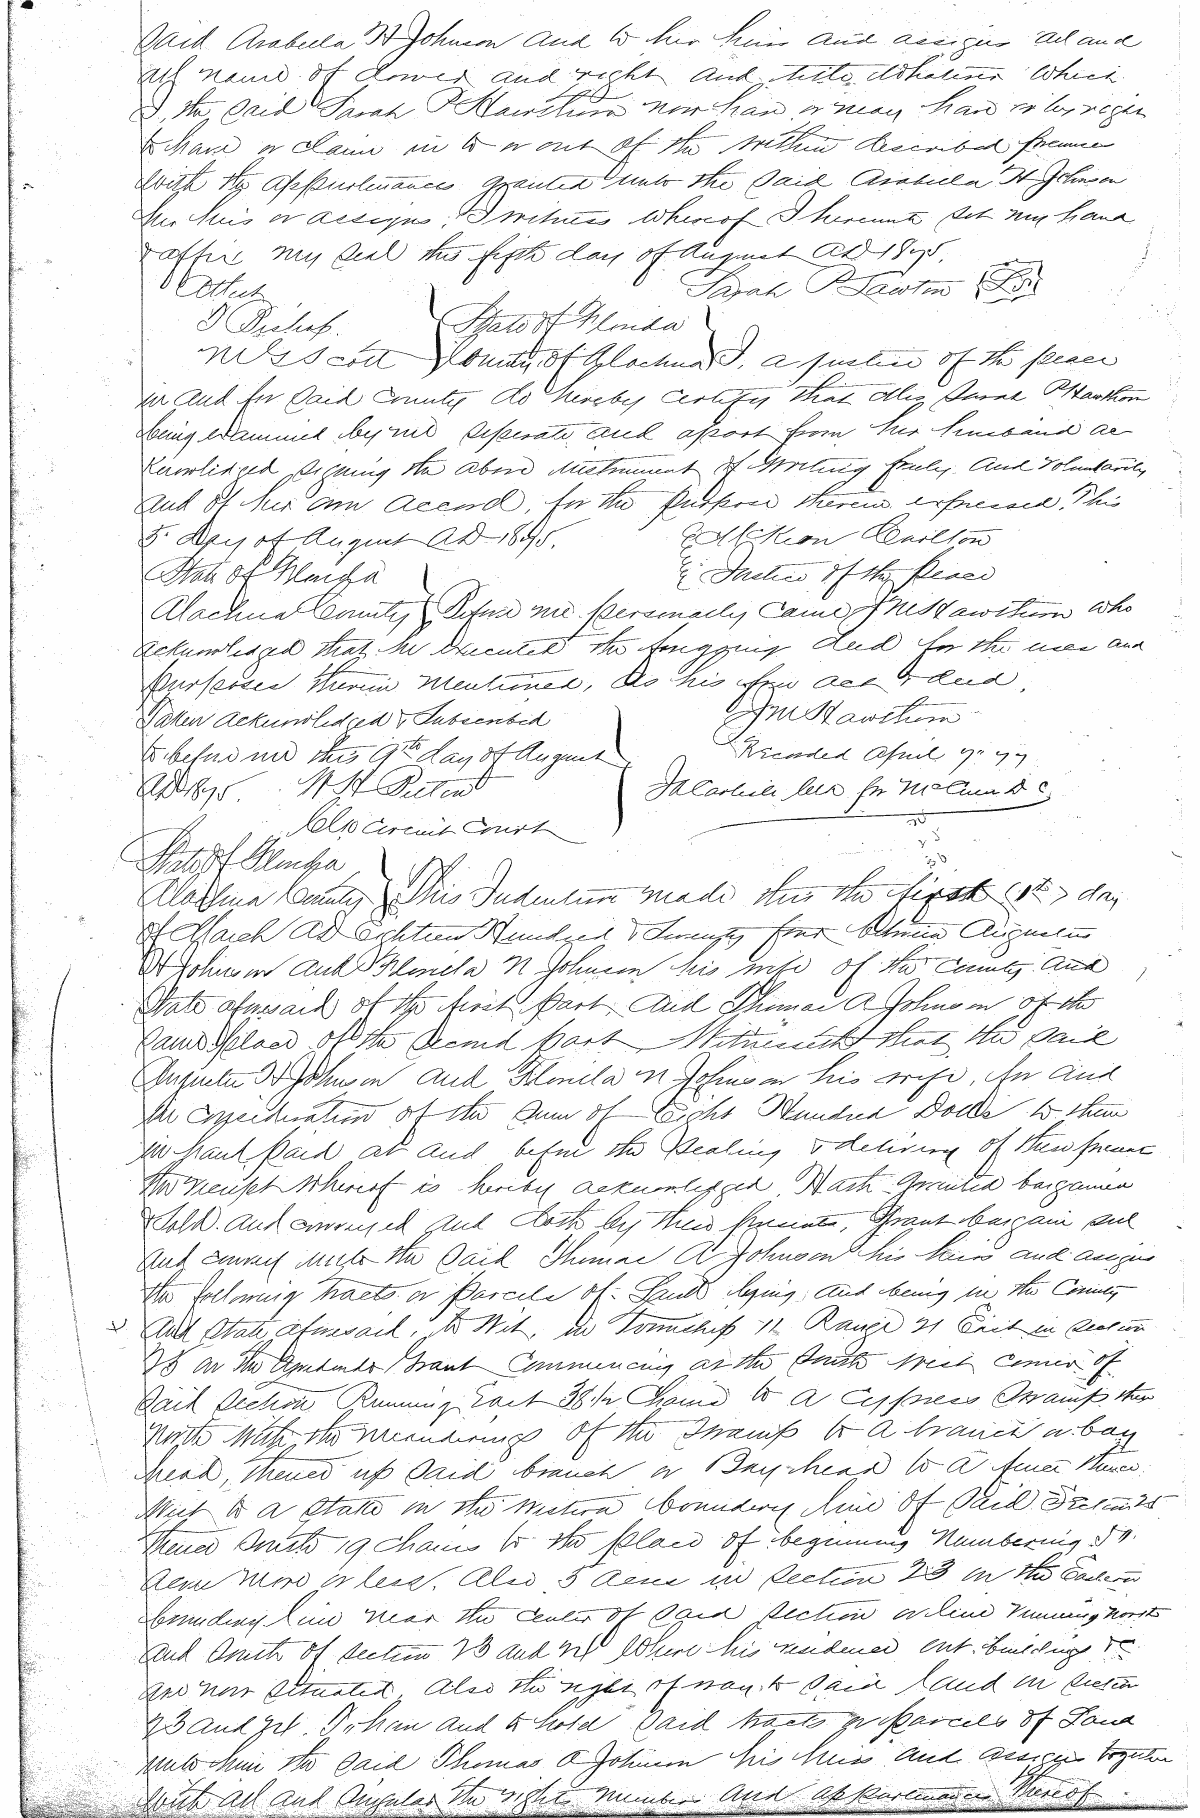 Said Arabella H Johnson and to her heirs and assigns all and
all name of dower and right and title whatever which
I, the said Sarah P Hawthorn now have or may have or by right
to have or claim in to or out of the within described premises
with the appurtenances granted unto the said Arabella H Johnson
her heirs or assigns. I witness whereof I hereunto set my hand
& affix my seal this fifth day of August AD 1875.
Attest
Sarah P Hawthorn
State of Florida
County of Alachua I, a justice of the peace
in and for said County do hereby certify that Mrs Sarah P Hawthorn
being examined by me seperate and apart from her husband ac
knowledged signing the above instrument of writing freely and voluntarily
and of her own accord, for the purpose therein expressed. This
5 Day of August AD 1875.
Justice of the Peace
State of Florida
Alachua County Before me personally came J M Hawthorn who
acknowledged that he executed the foregoing deed for the uses and
purposes therein mentioned, as his free act & deed.
J M Hawthorn
Taken acknowledged & Subscribed
to before me this 9th day of August
Recorded April 9" 77
AD 1875.
Clk Circuit Court
State of Florida
Alachua County This Indenture made this the first (1st) day
of March AD Eighteen Hundred & Seventy four between Augustus
H Johnson and N Johnson his wife of the County and
State aforesaid of the first part and Thomas A Johnson of the
same place of the second part Witnesseth that the said
Augustus H Johnson and N Johnson his wife, for and
in consideration of the sum of Eight Hundred Dolls to them
in hand paid at and before the sealing & delivery of these presents
the receipt whereof is hereby acknowledged Hath Granted bargained
& Sold and conveyed and doth by these presents, Grant bargain sell
and convey unto the said Thomas A Johnson his heirs and assigns
the following tracts or parcels of Land lying and being in the County
and State aforesaid, to Wit, in Township 11 Range 21 East in section
25 on the Grant Commencing at the South West corner of
said section Running East 38 1/2 Chains to a Cypress Swamp then
North With the meanderings of the Swamp to a branch or bay
head, thence up said branch or Bay head to a fence thence
West to a stake on the Western boundery line of said Section 25
thence South 19 chains to the place of beginning Numbering
acres more or less. Also 5 acres in section 23 on the Eastern
boundery line near the center of said section or line running North
and South of section 23 and 24 Where his residence out buildings &c
are now situated. Also the right of way to said land in section
23 and 24. To have and to hold said tracts or parcels of Land
unto him the said Thomas A Johnson his heirs and assigns together
with all and singular the rights members and appurtenances thereof